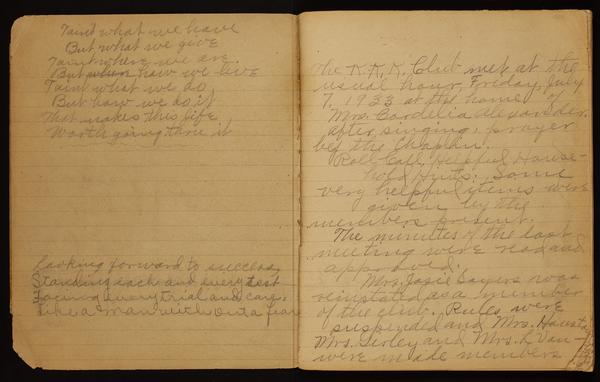 Taint what we have
But what we give
Taint where we are
But when how we live
Taint what we do
But how we do it
That makes this life
Worth going thru it
Looking forward to success,
Standing each and every test
Facing every trial and care,
Like a man with out a fear
The K.K.K. Club met at the
usual hour, Friday, July
7, 1933 at the home of
Mrs. Cordelia Alexander.
after singing, prayer
by the Chaplin.
Roll Call, Helpful House-
hold Hints. Some
very helpful items were
given by the
members present.
The minutes of the last
meeting were read and
approved.
Mrs. Josie Sayers was
reinstated as a member
of the club. Rules were
suspended and Mrs.
Mrs. and Mrs. L Van-
were made members